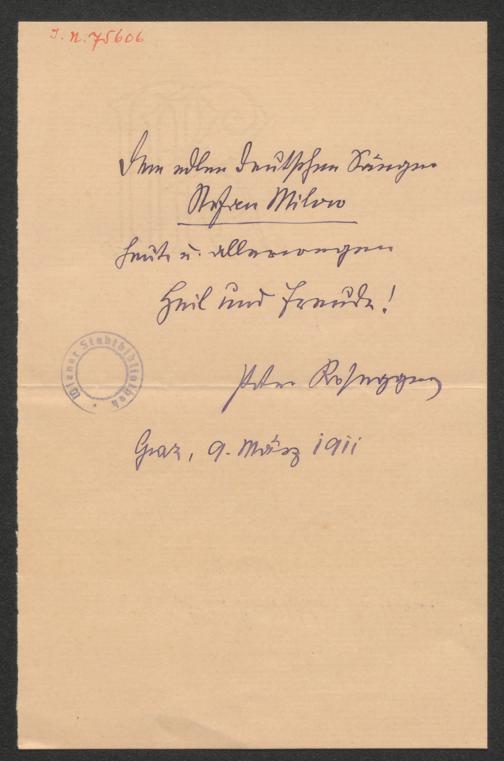 I. N. 75606
Dem edlen deutschen Sänger
Stefan Milow
heute u. allerwegen
Heil und Freude!
Wiener Stadtbibliothek
Peter Rosegger
Graz, 9. März 1911